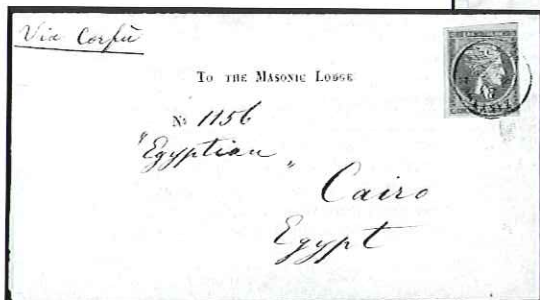 Via Corfù
To the Masonic Lodge
No 1156
"Egyptian"
Cairo
Egypt